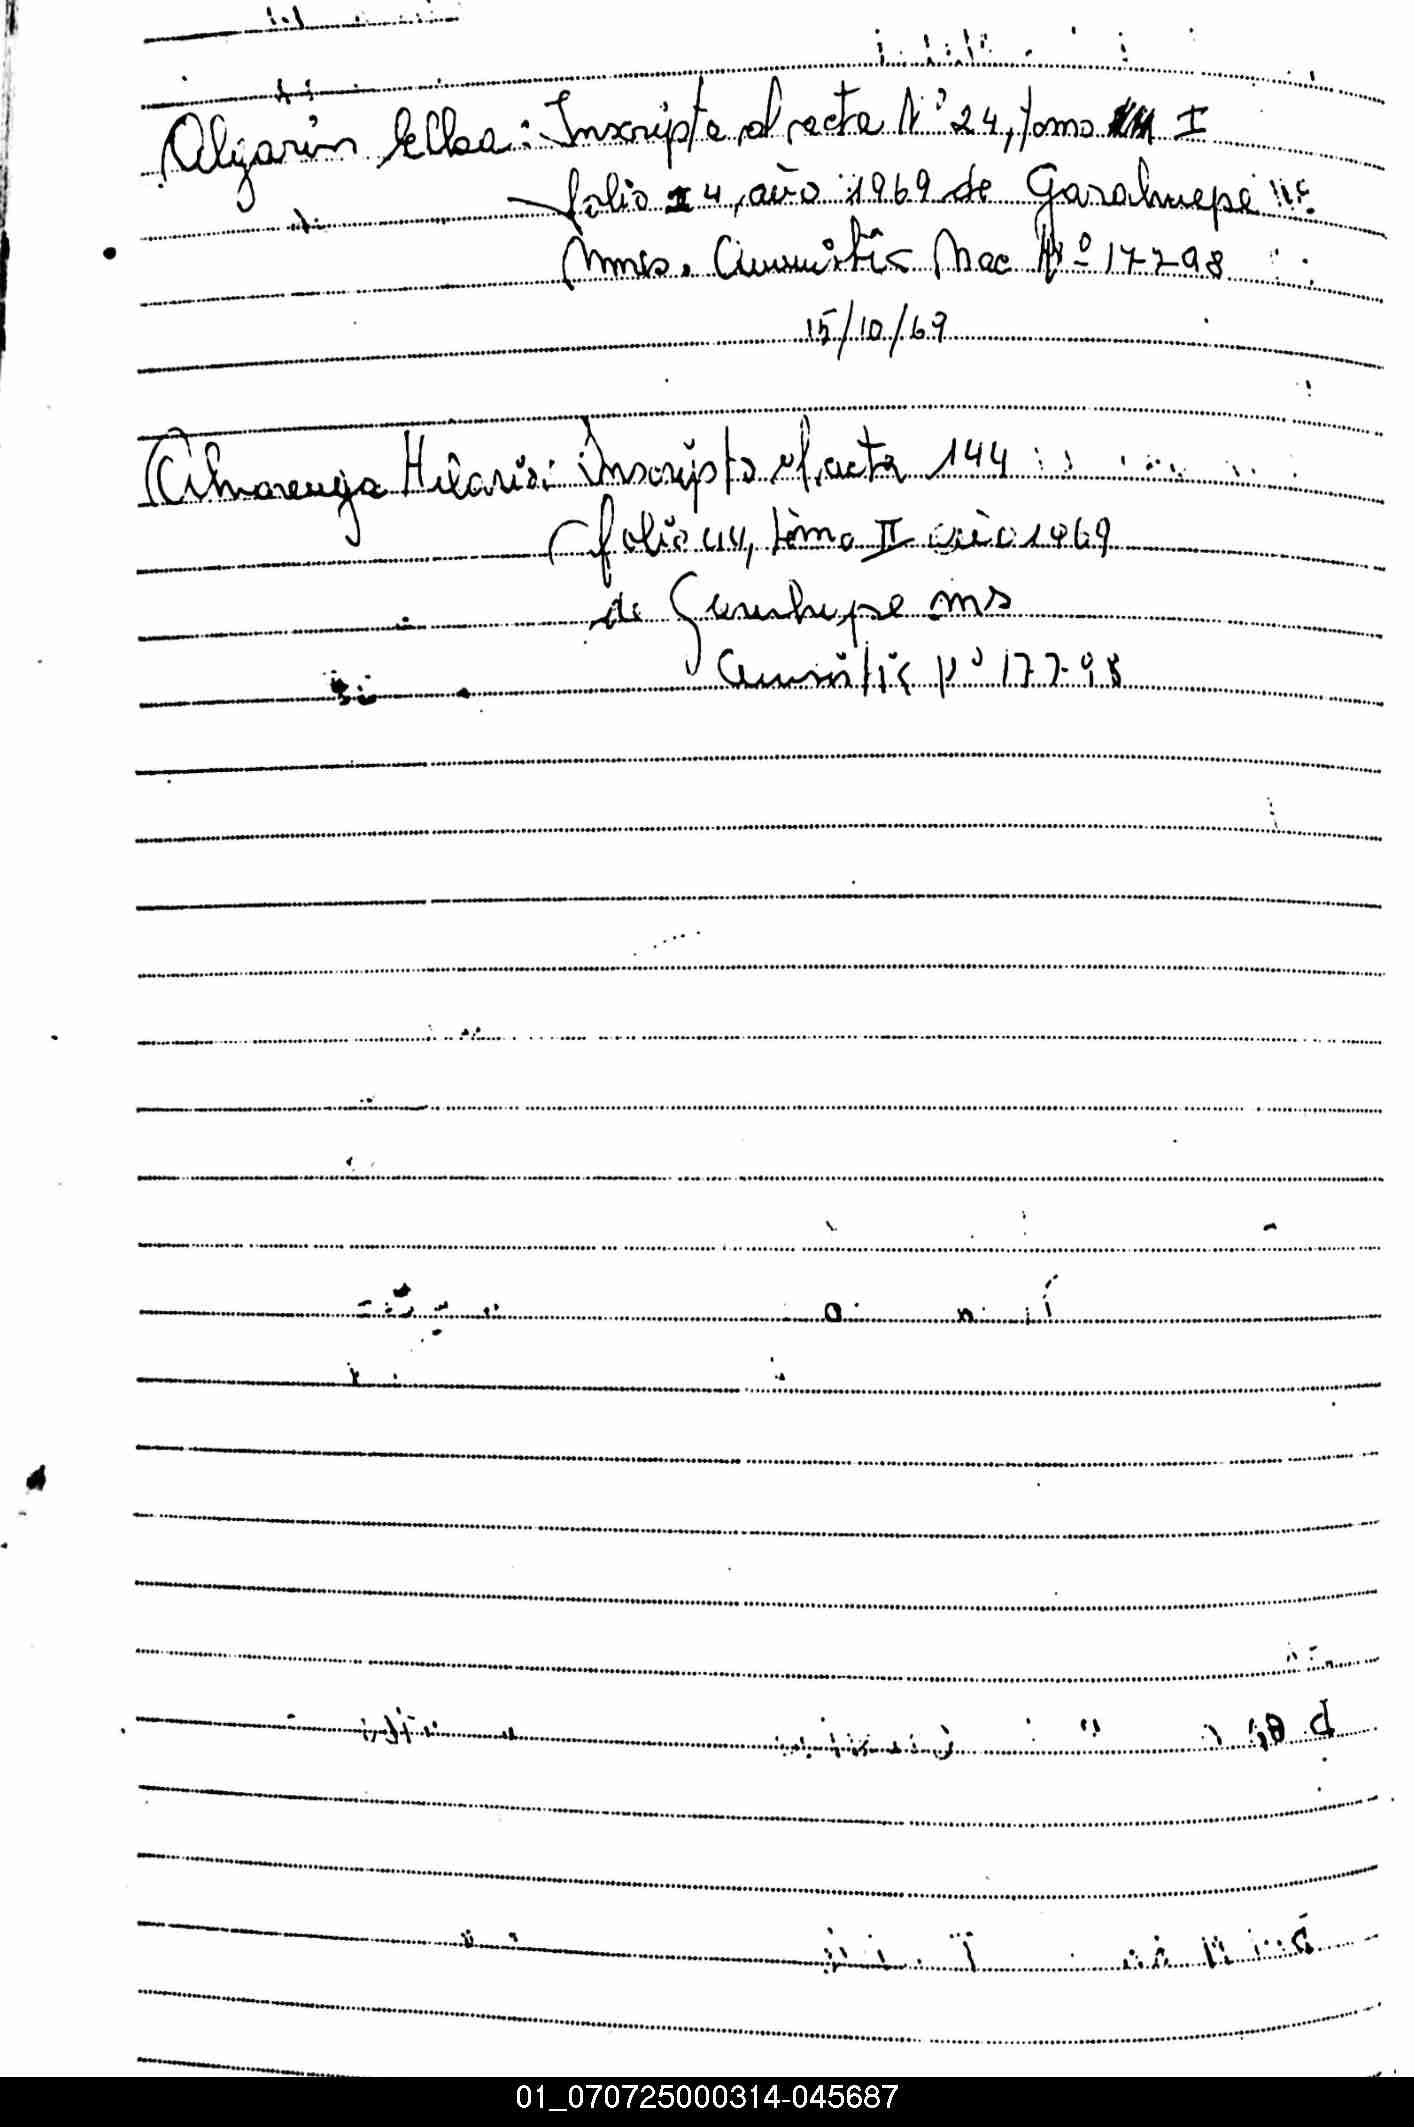 Algarin Elba: Inscripta al acta Nº 24, tomo I
folio 4, año 1969 de Garuhape
Mnes. Amnistia Nac Nº 17798
15/10/69
Alvarenga Hilario: Inscripto al acta 144
folio 44, tomo II año 1969
de Garuhape ms
Amnistia Nº 17798
01_070725000314-045687